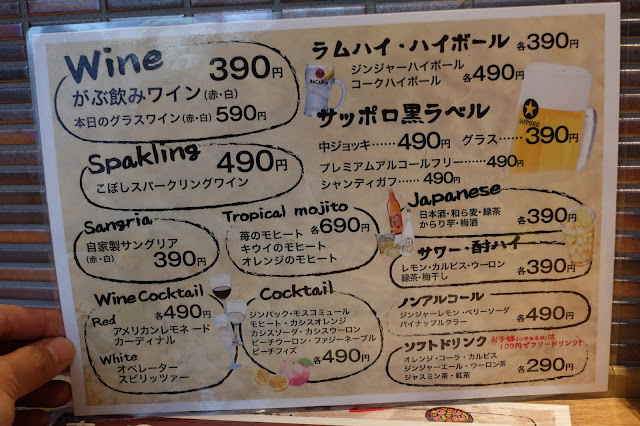 Wine 390円
がぶ飲みワイン(赤・白)
本日のグラスワイン(赤・白) 590円
Spakling 490円
こぼしスパークリングワイン
Sangria
自家製サングリア
(赤・白) 390円
Tropical mojito
各690円
苺のモヒート
キウイのモヒート
オレンジのモヒート
Wine Cocktail
各490円
Red
アメリカンレモネード
カーディナル
White
オペレーター
スピリッツァー
Cocktail
ジンバック・モスコミュール
モヒート・カシスオレンジ
カシスソーダ・カシスウーロン
ピーチウーロン・ファジーネーブル
ピーチフィズ 各490円
ラムハイ・ハイボール 各390円
ジンジャーハイボール
コークハイボール 各490円
BACARDI
サッポロ黒ラベル
中ジョッキ……490円 グラス……390円
プレミアムアルコールフリー……490円
シャンディガフ……490円
SAPPORO
Japanese
日本酒・和ら麦・緑茶
からり芋・梅酒 各390円
サワー・酎ハイ
レモン・カルピス・ウーロン
緑茶・梅干し 各390円
ノンアルコール
ジンジャーレモン・ベリーソーダ
パイナップルクラー 各490円
ソフトドリンク
お子様(小学生未満)は
100円でフリードリンク!
オレンジ・コーラ・カルピス
ジンジャーエール・ウーロン茶
ジャスミン茶・紅茶 各290円